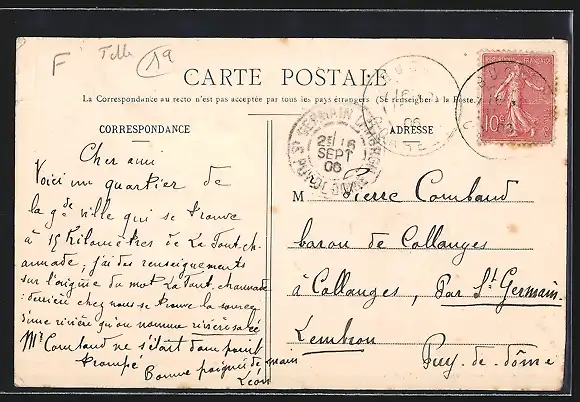 F Telle 19
CARTE POSTALE
La Correspondance au recto n'est pas acceptée par tous les pays étrangers (Se renseigner à la Poste.)
CORRESPONDANCE
ADRESSE
Cher ami
Voici un quartier de
la gde ville qui se trouve
à 15 Kilomètres de La Font-ch-
annade, j'ai des renseignements
sur l'origine du mot La Font. channade
: derrière chez nous se trouve la source
d'une rivière qu'on nomme rivière salée
Mr Combaud ne s'était donc point
trompé
Bonne poignée de main
Léon
ST GERMAIN LEMBRON
PUY DE DOME
2E /16
SEPT
06
10c
M Pierre Combaud
baron de Collanges
à Collanges, Par St Germain-
Lembron
Puy-de-dôme